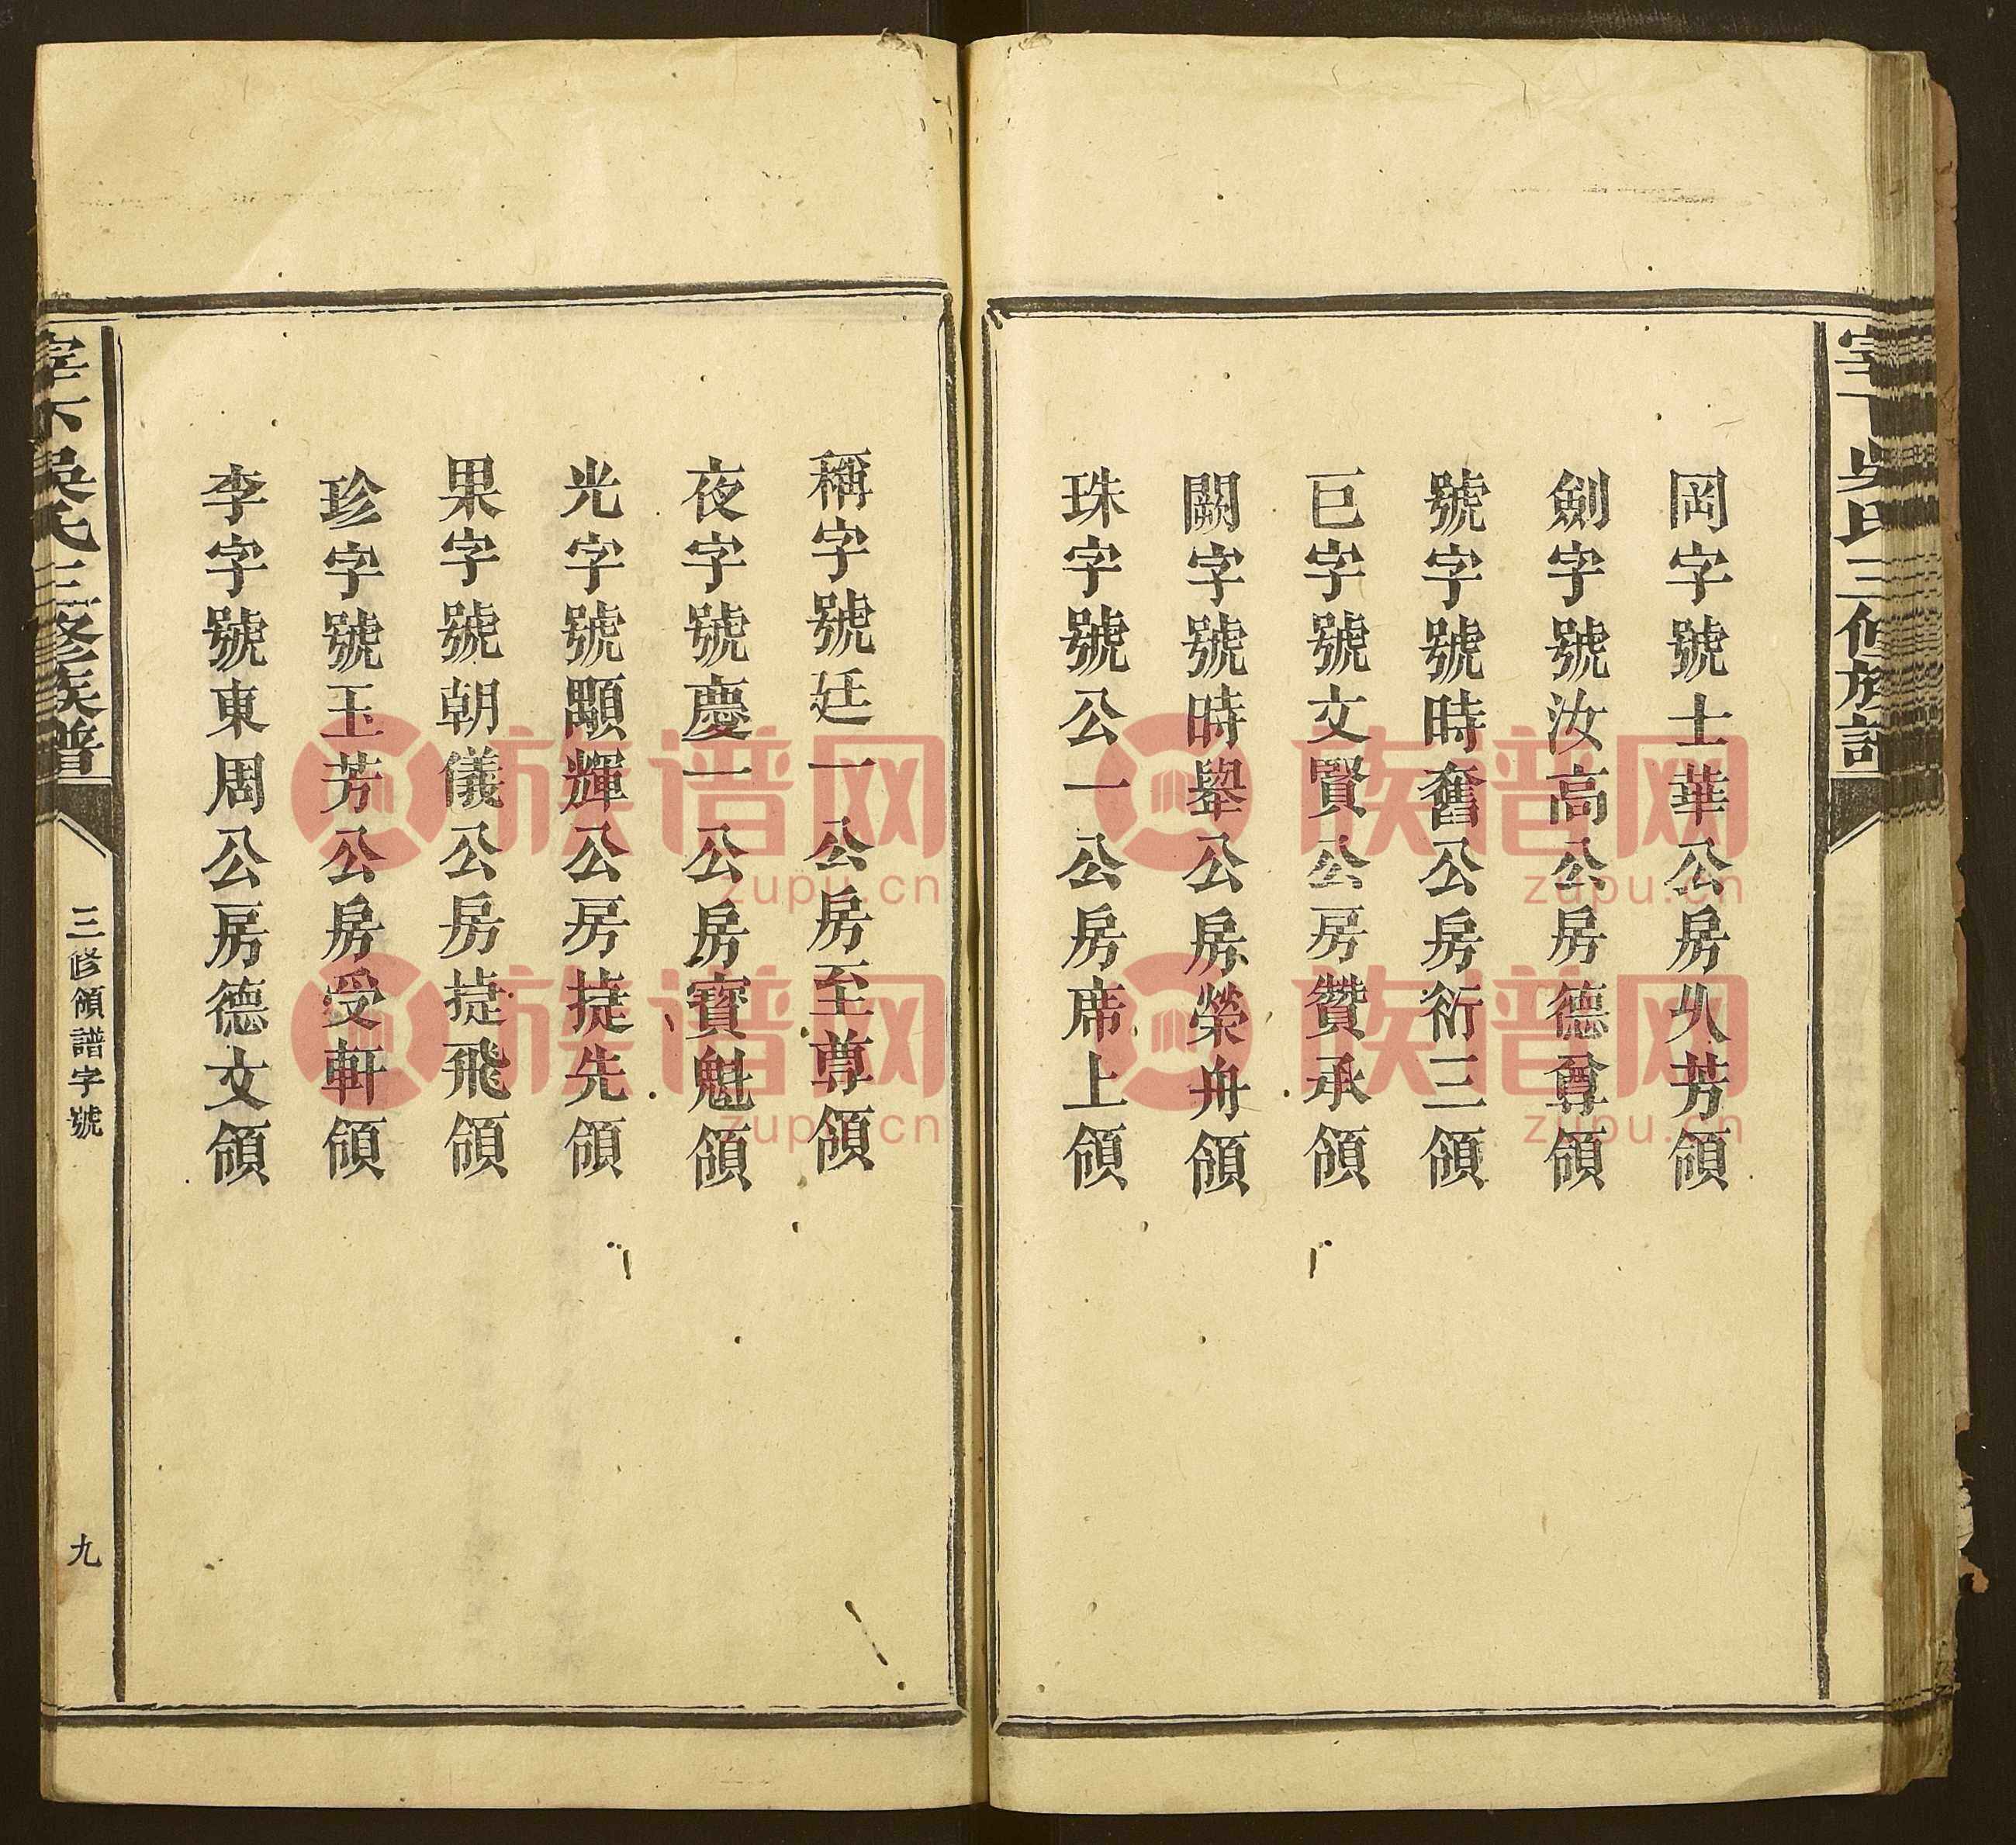 岡字號士華公房乆芳領
劍字號汝高公房德尊領
號字號時奮公房衍三領
巨字號文賢公房贊承領
闕字號時舉公房榮舟領
珠字號公一公房席上領
稱字號廷一公房至尊領
夜字號慶一公房寶魁領
光字號顯輝公房捷先領
果字號朝儀公房捷飛領
珍字號玉芳公房受軒領
李字號東周公房德文領
下吳氏三修族譜
三修領譜字號
九
族谱网
zupu.cn
族谱网
zupu.cn
族谱网
zupu.cn
族谱网
zupu.cn